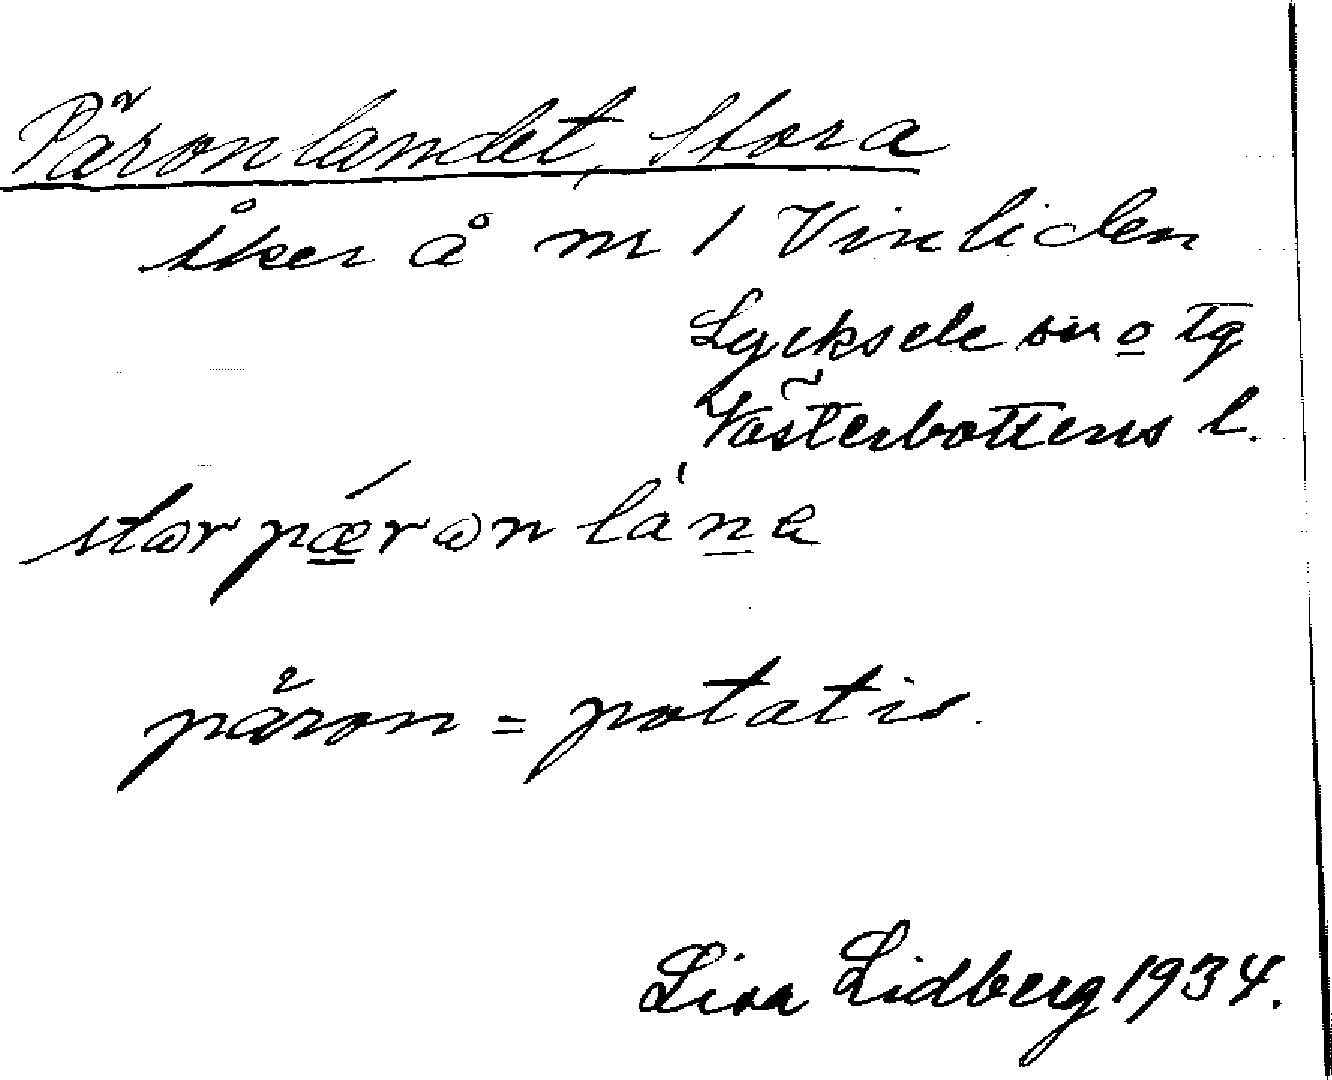 Päronlandet, Stora
åker å nr 1 Vinliden
Lycksele sn o tg
Västerbottens l.
stor pǽron lána
päron = potatis.
Lisa Lidberg 1934.